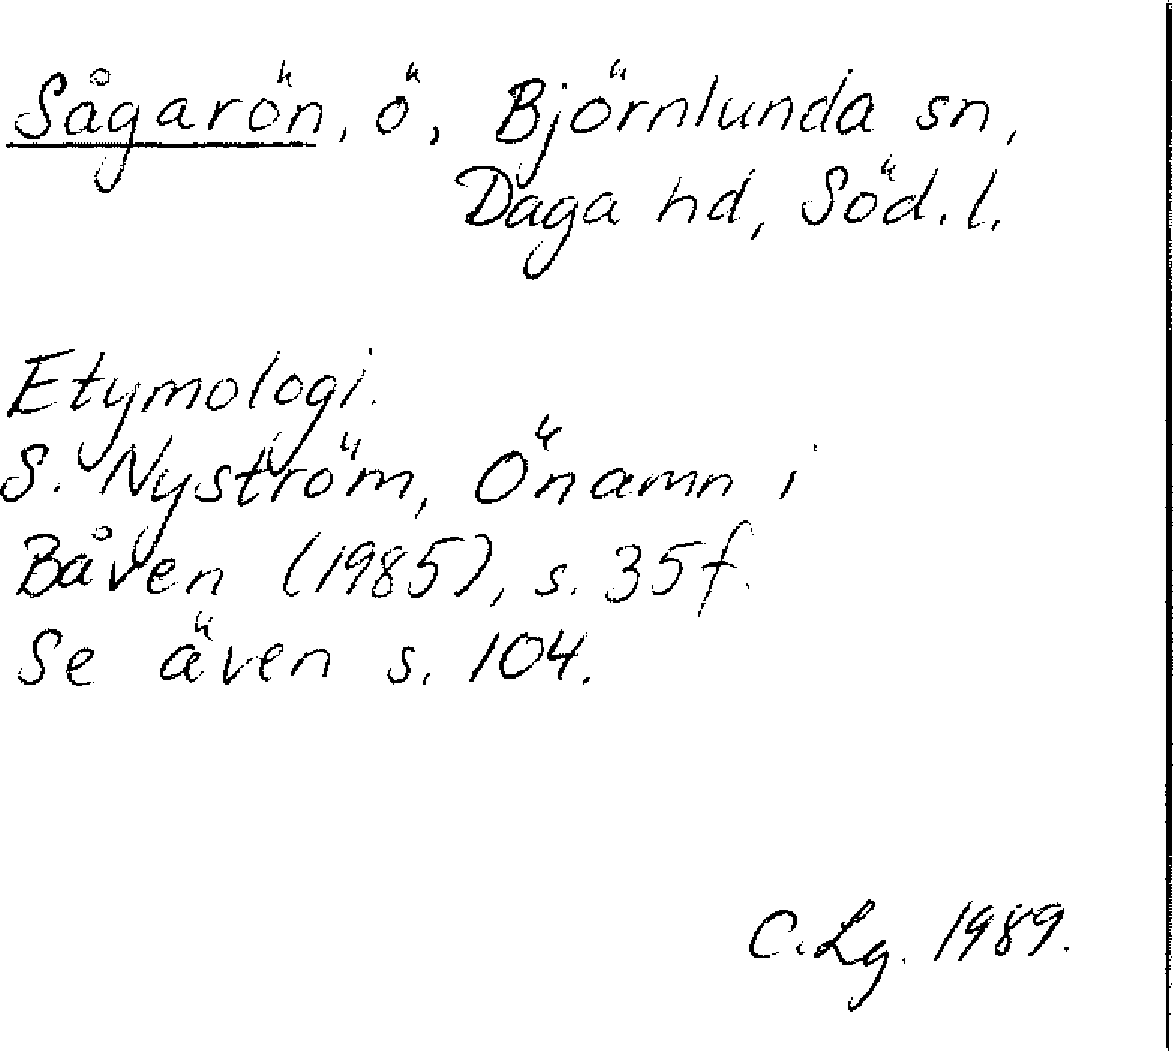 Sågarön, ö, Björnlunda sn,
Daga hd, Söd. l.
Etymologi.
S. Nyström, Önamn i
Båven (1985), s. 35 f.
Se även s. 104.
C. Lg. 1989.